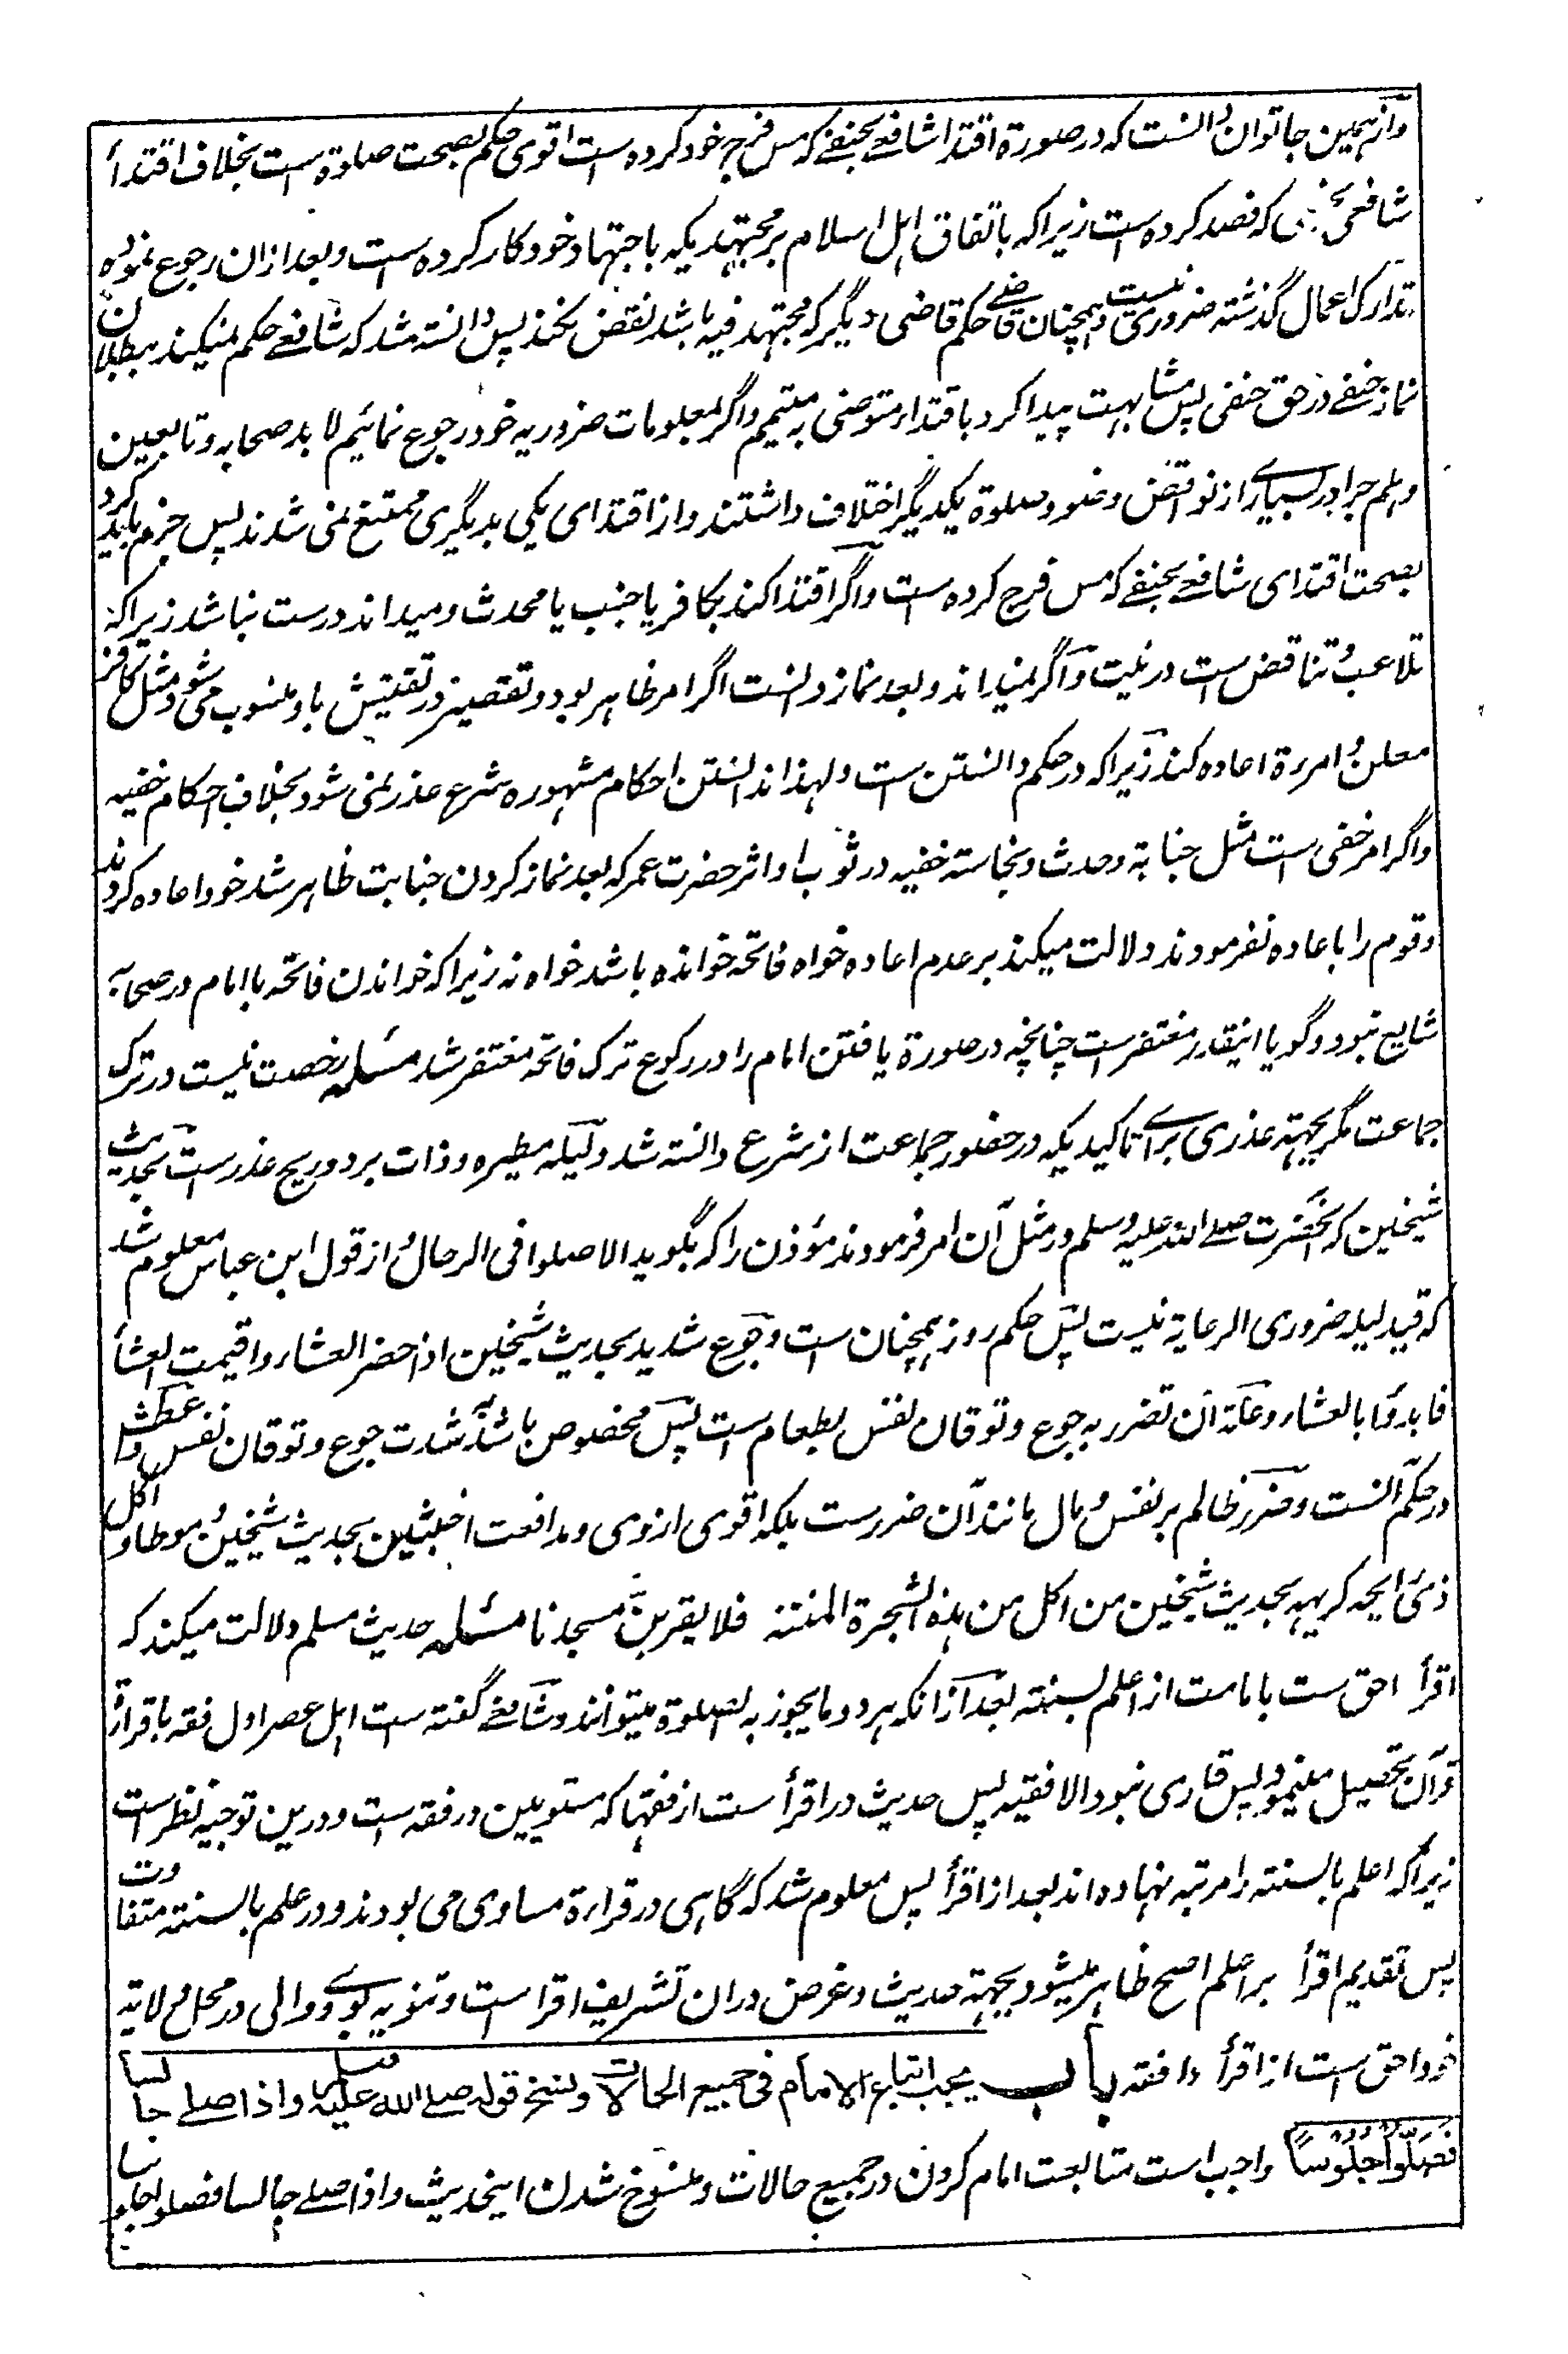 و ازہمین جا توان دانست کہ در صورۃ اقتدا شافعے بحنفے کہ مس فرج خود کردہ ست اقوی حکم بصحت صلوۃ ست بخلاف اقتداٴ
شافعی بحنفی کہ فصد کردہ ست زیراکہ باتفاق اہل اسلام بر مجتہدیکہ باجتہاد خود کار کردہ ست و بعد ازان رجوع نمودہ
تدارک اعمال گذشتہ ضروری نیست و ہمچنان قاضے حکم قاضی دیگر کہ مجتہد فیہ باشد نقض نکند پس دانستہ شد کہ شافعے حکم نمیکند ببطلان
نماز حنفے در حق حنفی پس مشابہت پیدا کرد باقتداء متوضی بہ متیمم و اگر بمعلومات ضروریہ خود رجوع نمائیم لابد صحابہ و تابعین
وہلم جرا در بسیارے از نواقض وضو و صلوۃ یکدیگر اختلاف داشتند و از اقتدای یکی بدیگری ممتنع نمی شدند پس جزم باید کرد
بصحت اقتدای شافعے بحنفے کہ مس فرج کردہ ست و اگر اقتدا کند بکافر یا جنب یا محدث و میداند درست نباشد زیراکہ
تلاعب و تناقض ست در نیت و اگر نمیداند و بعد نماز دانست اگر امر ظاہر بود و تقصیر در تفتیش باو منسوب می شود مثل کافر
معلن و امرۃ اعادہ کند زیراکہ در حکم دانستن ست و لہذا ندانستن احکام مشہورہ شرع عذر نمی شود بخلاف احکام خفیہ
و اگر امر خفی ست مثل جنابۃ و حدث و نجاستہ خفیہ در ثوب او اثر حضرت عمر کہ بعد نماز کردن جنابت ظاہر شد خود اعادہ کردند
و قوم را باعادہ نفرمودند دلالت میکند بر عدم اعادہ خواہ فاتحہ خواندہ باشد خواہ نہ زیراکہ خواندن فاتحہ با امام در صحابہ
شایع نبود و گویا اینقدر مغتفر ست چنانچہ در صورۃ یافتن امام را در رکوع ترک فاتحہ مغتفر شد مسئلہ رخصت نیست در ترک
جماعت مگر بجہتہ عذری برائے تاکیدیکہ در حضور جماعت از شرع دانستہ شد و لیلہ مطیرہ و ذات برد و ریح عذر ست بحدیث
شیخین کہ آنحضرت صلے اللہ علیہ وسلم در مثل آن امر فرمودند مؤذن را کہ بگوید الا صلوا فی الرحال و از قول ابن عباس معلوم شد
کہ قید لیلہ ضروری الرعایۃ نیست پس حکم روز ہمچنان ست و جوع شدید بحدیث شیخین اذا حضر العشاء و اقیمت العشأ
فابدؤا بالعشاء و علۃ آن تضرر بہ جوع و توقان نفس بطعام ست پس مخصوص باشد بہ شدت جوع و توقان نفس و عطش
در حکم آنست و ضرر ظالم بر نفس و مال مانند آن ضرر ست بلکہ اقوی از وی و مدافعت اخبثین بحدیث شیخین و موطا و اکل
ذی رایحہ کریہہ بحدیث شیخین من اکل من ہذہ الشجرۃ المنتنۃ فلا یقربن مسجدنا مسئلہ حدیث مسلم دلالت میکند کہ
اقرأ احق ست بامامت از اعلم بسنتہ بعد ازانکہ ہر دو ما یجوز بہ الصلوۃ میتوانند و شافعے گفتہ ست اہل عصر اول فقہ با قراءۃ
قرآن تحصیل مینمود پس قاری نبود الا فقیہ پس حدیث در اقرأ ست از فقہا کہ مستویین در فقہ ست و درین توجیہ نظر ست
زیراکہ اعلم بالسنتہ را مرتبہ نہادہ اند بعد از اقرأ پس معلوم شد کہ گاہی در قراءۃ مساوی می بودند و در علم بالسنتہ متفاوت
پس تقدیم اقرأ بر اعلم اصح ظاہر میشود بجہتہ حدیث و غرض دران تشریف اقرا ست و تنویہ بوے و والی در محل ولایۃ
خود احق ست از اقرأ و افقہ باب یجب اتباع الامام فی جمیع الحالات و نسخ قولہ صلے اللہ علیہ وسلم و اذا صلے جالسا
فَصَلُّوْا جُلُوْسًا واجب است متابعت امام کردن در جمیع حالات و منسوخ شدن اینحدیث و اذا صلے جالسا فصلوا جلوسا